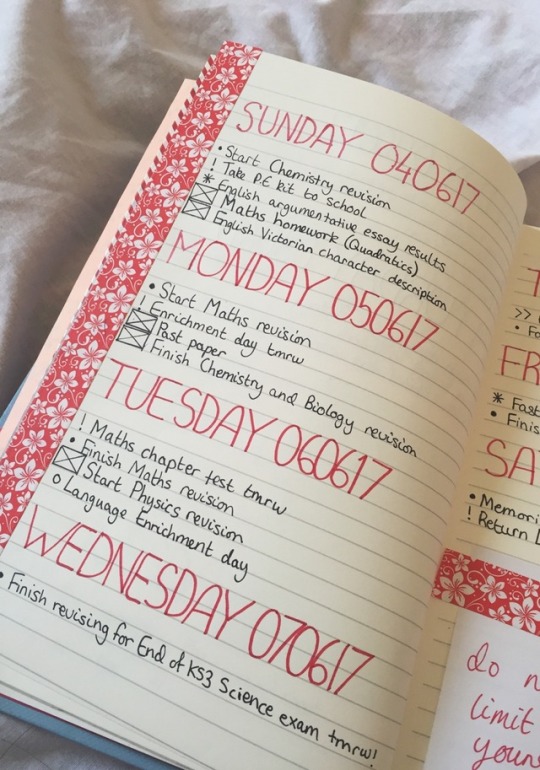 SUNDAY 040617
• Start Chemistry revision
! Take P.E kit to school
* English argumentative essay results
Maths homework (Quadratics)
English Victorian character description
MONDAY 050617
• Start Maths revision
! Enrichment day tmrw
Past paper
Finish Chemistry and Biology revision
TUESDAY 060617
! Maths chapter test tmrw
• Finish Maths revision
Start Physics revision
o Language Enrichment day
WEDNESDAY 070617
• Finish revising for End of KS3 Science exam tmrw!
>>
•
* Fast
•
• 
! Return
do
limit